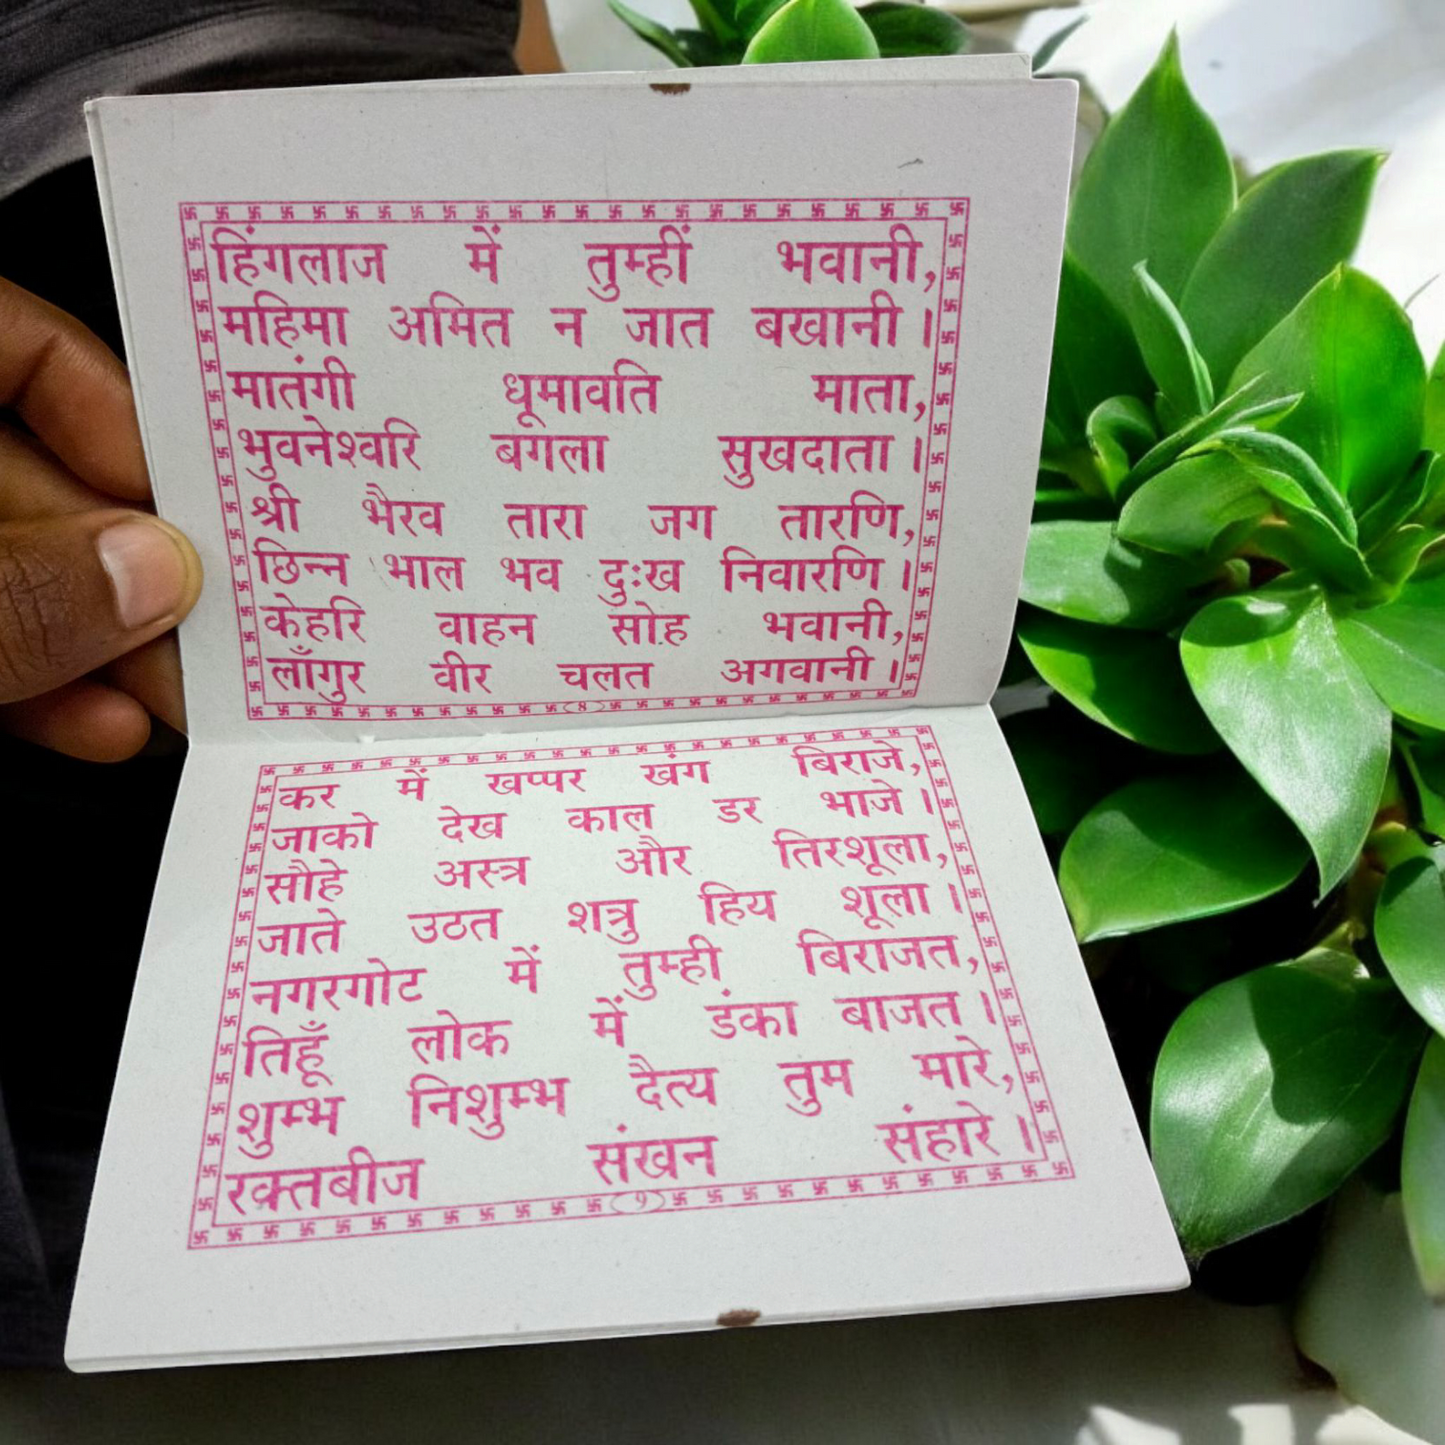 हिंगलाज में तुम्हीं भवानी,
महिमा अमित न जात बखानी ।
मातंगी धूमावति माता,
भुवनेश्वरि बगला सुखदाता ।
श्री भैरव तारा जग तारणि,
छिन्न भाल भव दुःख निवारणि ।
केहरि वाहन सोह भवानी,
लाँगुर वीर चलत अगवानी ।
(8)
कर में खप्पर खंग बिराजे,
जाको देख काल डर भाजे ।
सौहे अस्त्र और तिरशूला,
जाते उठत शत्रु हिय शूला ।
नगरगोट में तुम्ही बिराजत,
तिहूँ लोक में डंका बाजत ।
शुम्भ निशुम्भ दैत्य तुम मारे,
रक्तबीज संखन संहारे ।
(9)